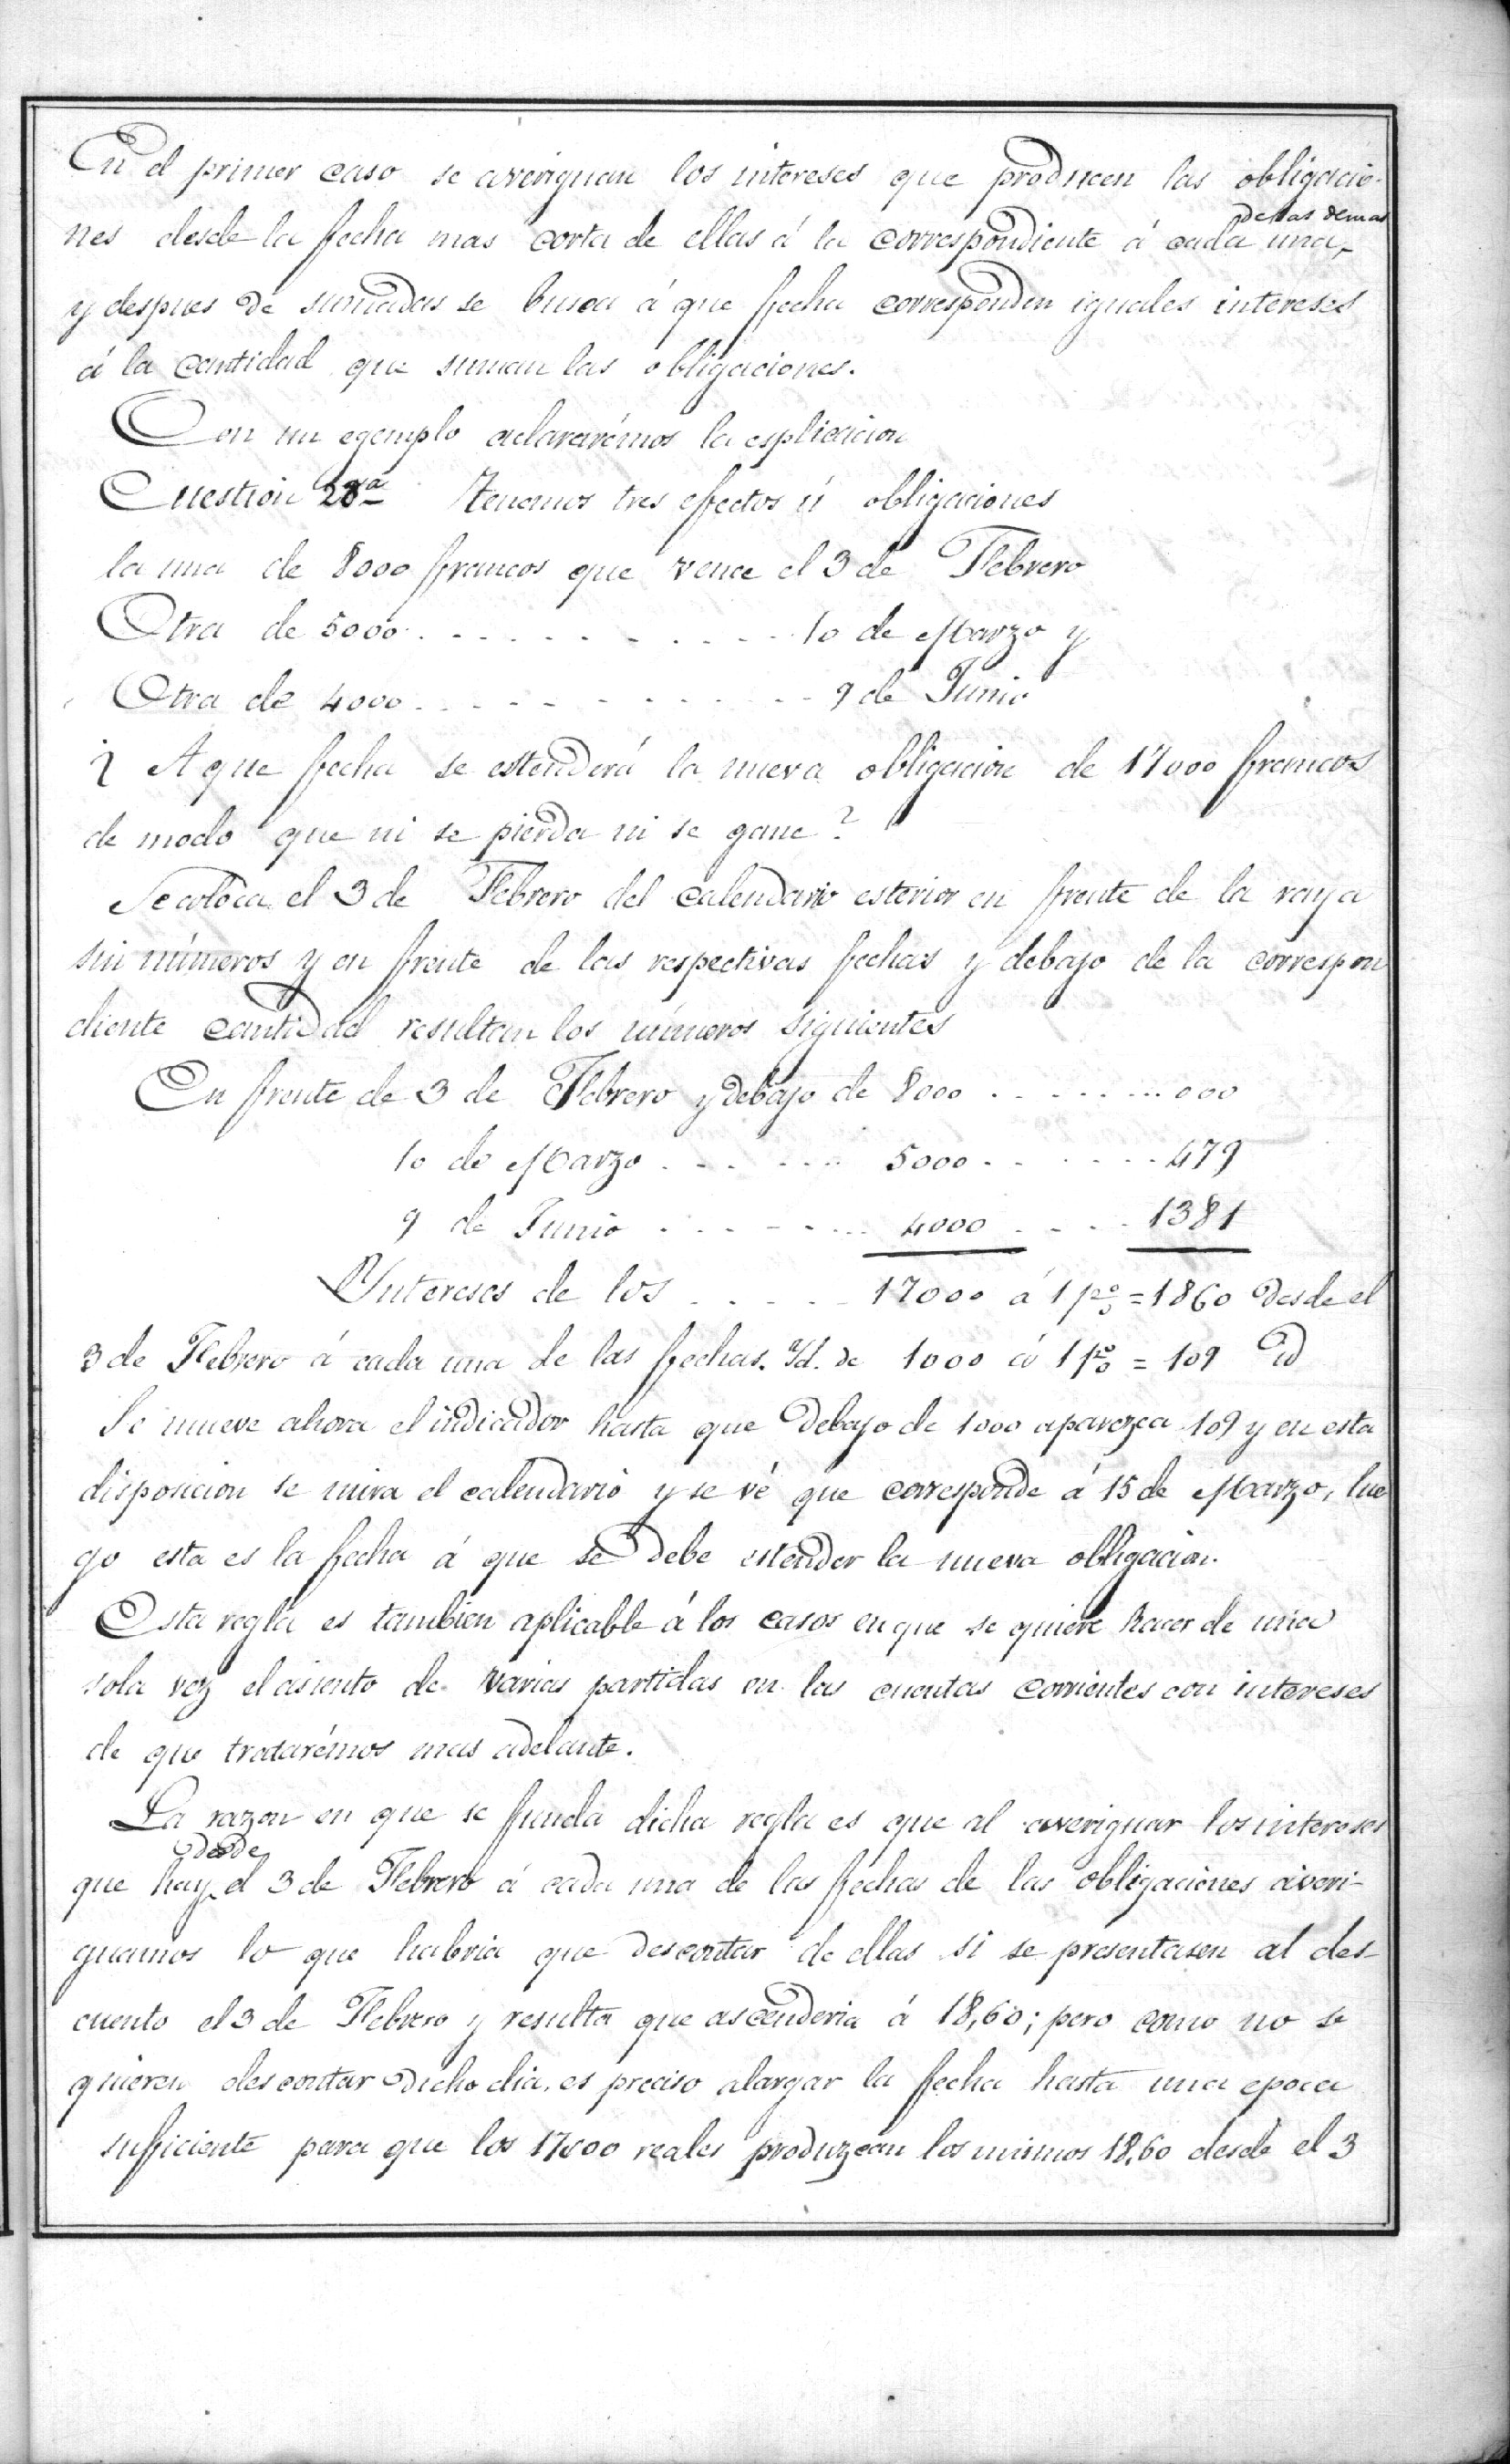 En el primer caso se averiguan los intereses que producen las obligacio-
nes desde la fecha mas corta de ellas á la correspondiente á cada una de las demas,
y despues de sumadas se busca á que fecha corresponden iguales intereses
á la cantidad que suman las obligaciones.
Con un egemplo aclararémos la esplicacion
Cuestion 28ª Tenemos tres efectos ú obligaciones
la una de 8000 francos que vence el 3 de Febrero
Otra de 5000 . . . . . . . . . . . 10 de Marzo y
Otra de 4000 . . . . . . . . . . . 9 de Junio
¿ A que fecha se estenderá la nueva obligacion de 17000 francos
de modo que ni se pierda ni se gane ?
Se coloca el 3 de Febrero del calendario esterior en frente de la raya
sin números y en frente de las respectivas fechas y debajo de la correspon
diente cantidad resultan los números siguientes
En frente de 3 de Febrero y debajo de 8000 . . . . . . . . . 000
10 de Marzo . . . . . . . 5000 . . . . . . . 479
9 de Junio . . . . . . . . 4000 . . . . . 1381
Yntereses de los . . . . . 17000 á 1 p% = 1860 desde el
3 de Febrero á cada una de las fechas. Yd. de 1000 á 1 p% = 109 id
Se mueve ahora el indicador hasta que debajo de 1000 aparezca 109 y en esta
disposicion se mira el calendario y se vé que corresponde á 15 de Marzo, lue
go esta es la fecha á que se debe estender la nueva obligacion.
Esta regla es tambien aplicable á los casos en que se quiere hacer de una
sola vez el asiento de varias partidas en las cuentas corrientes con intereses
de que tratarémos mas adelante.
La razon en que se funda dicha regla es que al averiguar los intereses
que hay desde el 3 de Febrero á cada una de las fechas de las obligaciones averi-
guamos lo que habria que descontar de ellas si se presentasen al des-
cuento el 3 de Febrero y resulta que ascenderia á 18,60; pero como no se
quieren descontar dicho dia, es preciso alargar la fecha hasta una epoca
suficiente para que los 17000 reales produzcan los mismos 18,60 desde el 3